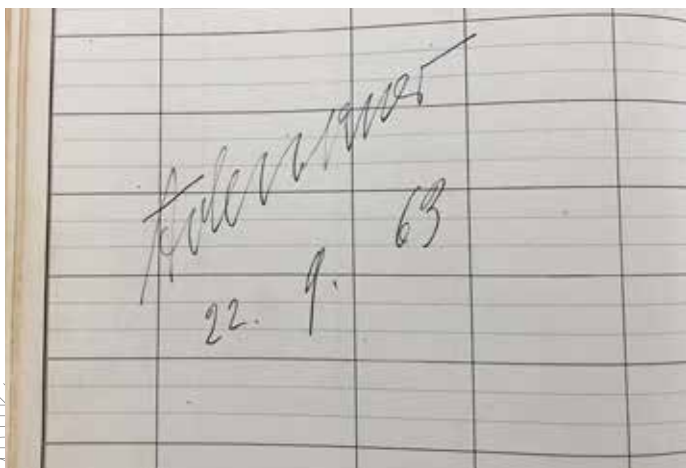 Adenauer
22. 9. 63